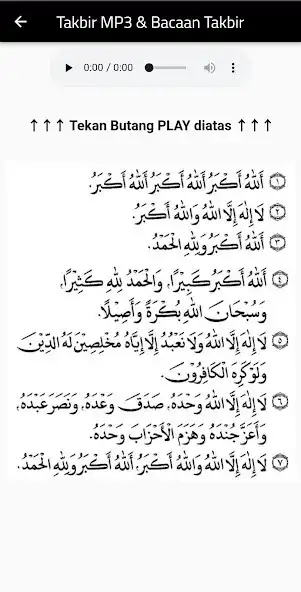 Takbir MP3 & Bacaan Takbir
0:00 / 0:00
↑ ↑ ↑ Tekan Butang PLAY diatas ↑ ↑ ↑
١ اَللهُ أَكْبَرُ اَللهُ أَكْبَرُ اَللهُ أَكْبَرُ.
٢ لَا إِلٰهَ إِلَّا اللهُ وَاللهُ أَكْبَرُ.
٣ اَللهُ أَكْبَرُ وَلِلّٰهِ الْحَمْدُ.
٤ اَللهُ أَكْبَرُ كَبِيْرًا، وَالْحَمْدُ لِلّٰهِ كَثِيْرًا،
وَسُبْحَانَ اللهِ بُكْرَةً وَأَصِيْلًا.
٥ لَا إِلٰهَ إِلَّا اللهُ وَلَا نَعْبُدُ إِلَّا إِيَّاهُ مُخْلِصِيْنَ لَهُ الدِّيْنَ
وَلَوْ كَرِهَ الْكَافِرُوْنَ.
٦ لَا إِلٰهَ إِلَّا اللهُ وَحْدَهُ، صَدَقَ وَعْدَهُ، وَنَصَرَ عَبْدَهُ،
وَأَعَزَّ جُنْدَهُ وَهَزَمَ الْأَحْزَابَ وَحْدَهُ.
٧ لَا إِلٰهَ إِلَّا اللهُ وَاللهُ أَكْبَرُ، اَللهُ أَكْبَرُ وَلِلّٰهِ الْحَمْدُ.